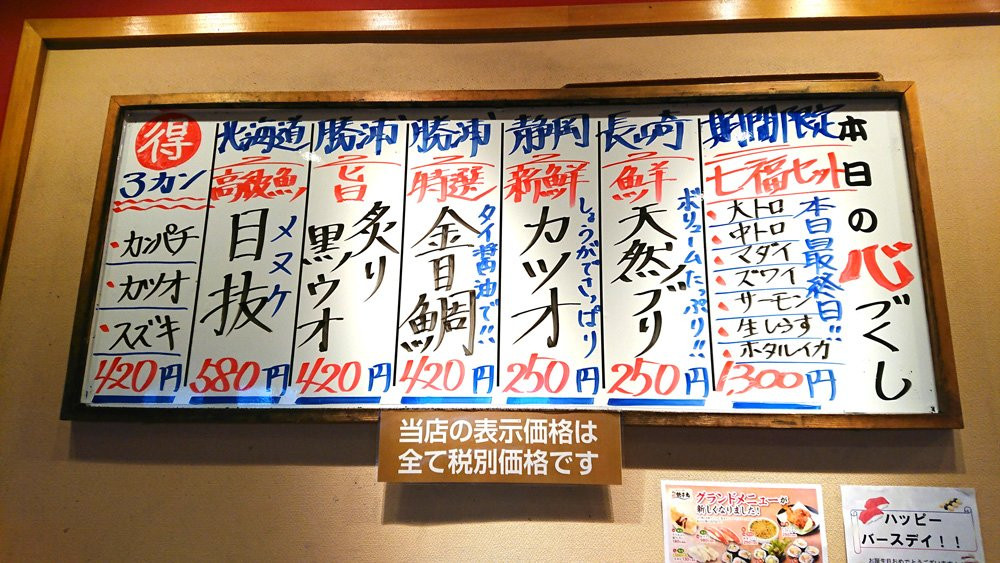 本日の心づくし
期間限定
七福セット
本日最終日!!
大トロ
中トロ
マダイ
ズワイ
サーモン
生しらす
ホタルイカ
1,300円
長崎
鮮
天然ブリ
ボリュームたっぷり!!
250円
静岡
新鮮
カツオ
しょうがでさっぱり
250円
勝浦
特選
金目鯛
タイ醤油で!!
420円
勝浦
炙り
黒ソウオ
420円
北海道
高級魚
目抜
メヌケ
580円
得
3カン
カンパチ
カツオ
スズキ
420円
当店の表示価格は
全て税別価格です
グランドメニューが
新しくなりました!
ハッピー
バースデイ!!